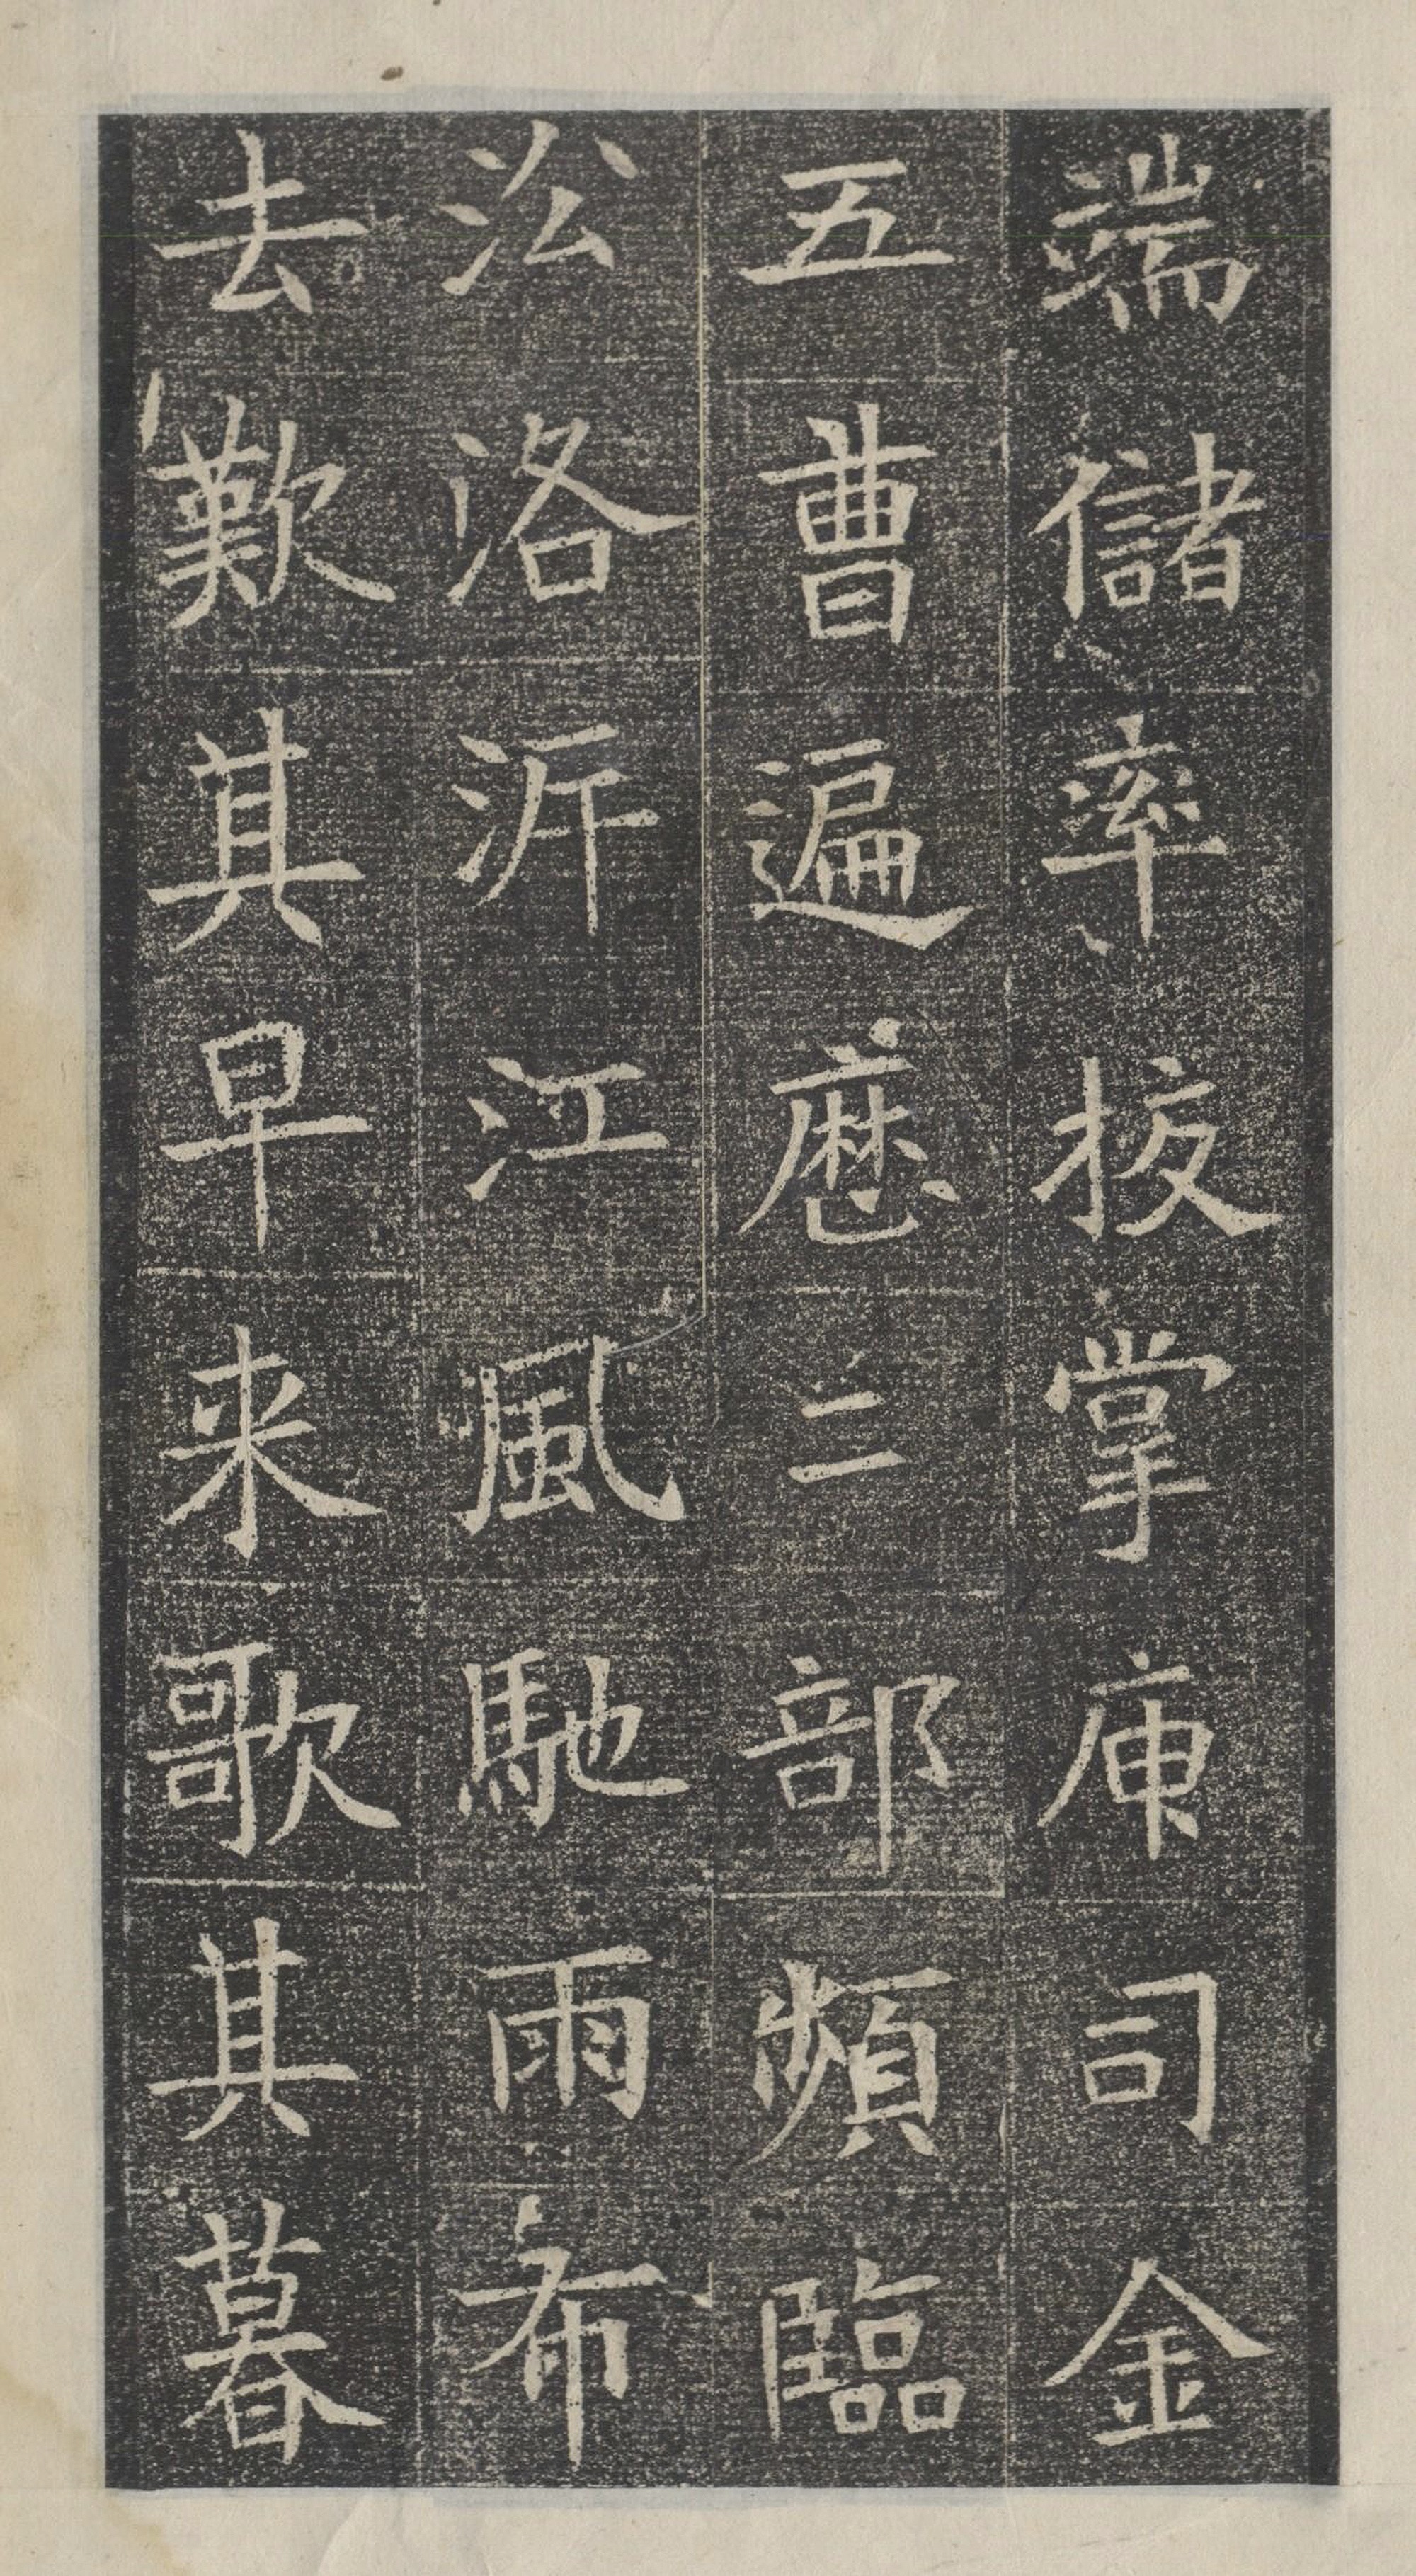 端儲率挍掌司金
五曹遍歷三部頻臨
㳂洛沂江風馳雨布
去歎其早来歌其暮